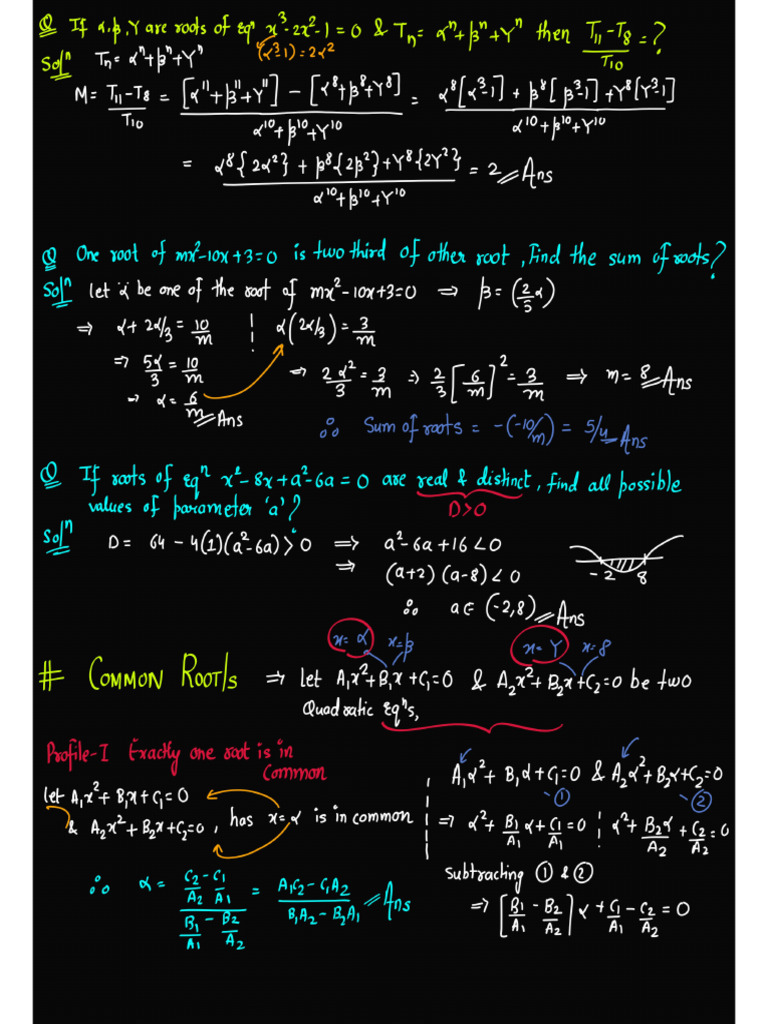 Q If α,β,γ are roots of Eqⁿ x³-2x²-1=0 & Tn= αⁿ+βⁿ+γⁿ then (T11-T8)/T10 = ?
(α³-1)=2α²
Solⁿ Tn= αⁿ+βⁿ+γⁿ
M= (T11-T8)/T10 = ([α¹¹+β¹¹+γ¹¹] - [α⁸+β⁸+γ⁸])/(α¹⁰+β¹⁰+γ¹⁰) = (α⁸[α³-1] + β⁸[β³-1] + γ⁸[γ³-1])/(α¹⁰+β¹⁰+γ¹⁰)
= (α⁸{2α²} + β⁸{2β²} + γ⁸{2γ²})/(α¹⁰+β¹⁰+γ¹⁰) = 2 Ans
Q One root of mx²-10x+3=0 is two third of other root, Find the sum of roots?
Solⁿ let α be one of the root of mx²-10x+3=0 ⇒ β = (2/3 α)
⇒ α+2α/3 = 10/m | α(2α/3) = 3/m
⇒ 5α/3 = 10/m ⇒ 2α²/3 = 3/m ⇒ 2/3 [6/m]² = 3/m ⇒ m = 8 Ans
⇒ α = 6/m Ans
∴ Sum of roots = -(-10/m) = 5/4 Ans
Q If roots of Eqⁿ x²-8x+a²-6a=0 are real & distinct, find all possible
values of parameter 'a'? D>0
Solⁿ D= 64-4(1)(a²-6a)>0 ⇒ a²-6a+16<0
⇒ (a+2)(a-8)<0
-2 8
∴ a∈(-2,8) Ans
x=α x=β x=γ x=8
# COMMON ROOT/s ⇒ let A₁x²+B₁x+C₁=0 & A₂x²+B₂x+C₂=0 be two
Quadratic Eqⁿs,
Profile-I Exactly one root is in
Common
let A₁x²+B₁x+C₁=0
& A₂x²+B₂x+C₂=0, has x=α is in common
∴ α = (C₂/A₂ - C₁/A₁)/(B₁/A₁ - B₂/A₂) = (A₁C₂-C₁A₂)/(B₁A₂-B₂A₁) Ans
A₁α²+B₁α+C₁=0 & A₂α²+B₂α+C₂=0
-① -②
⇒ α²+B₁/A₁ α+C₁/A₁=0 | α²+B₂α/A₂+C₂/A₂=0
Subtracting ① & ②
⇒ [B₁/A₁ - B₂/A₂] α + C₁/A₁ - C₂/A₂ = 0